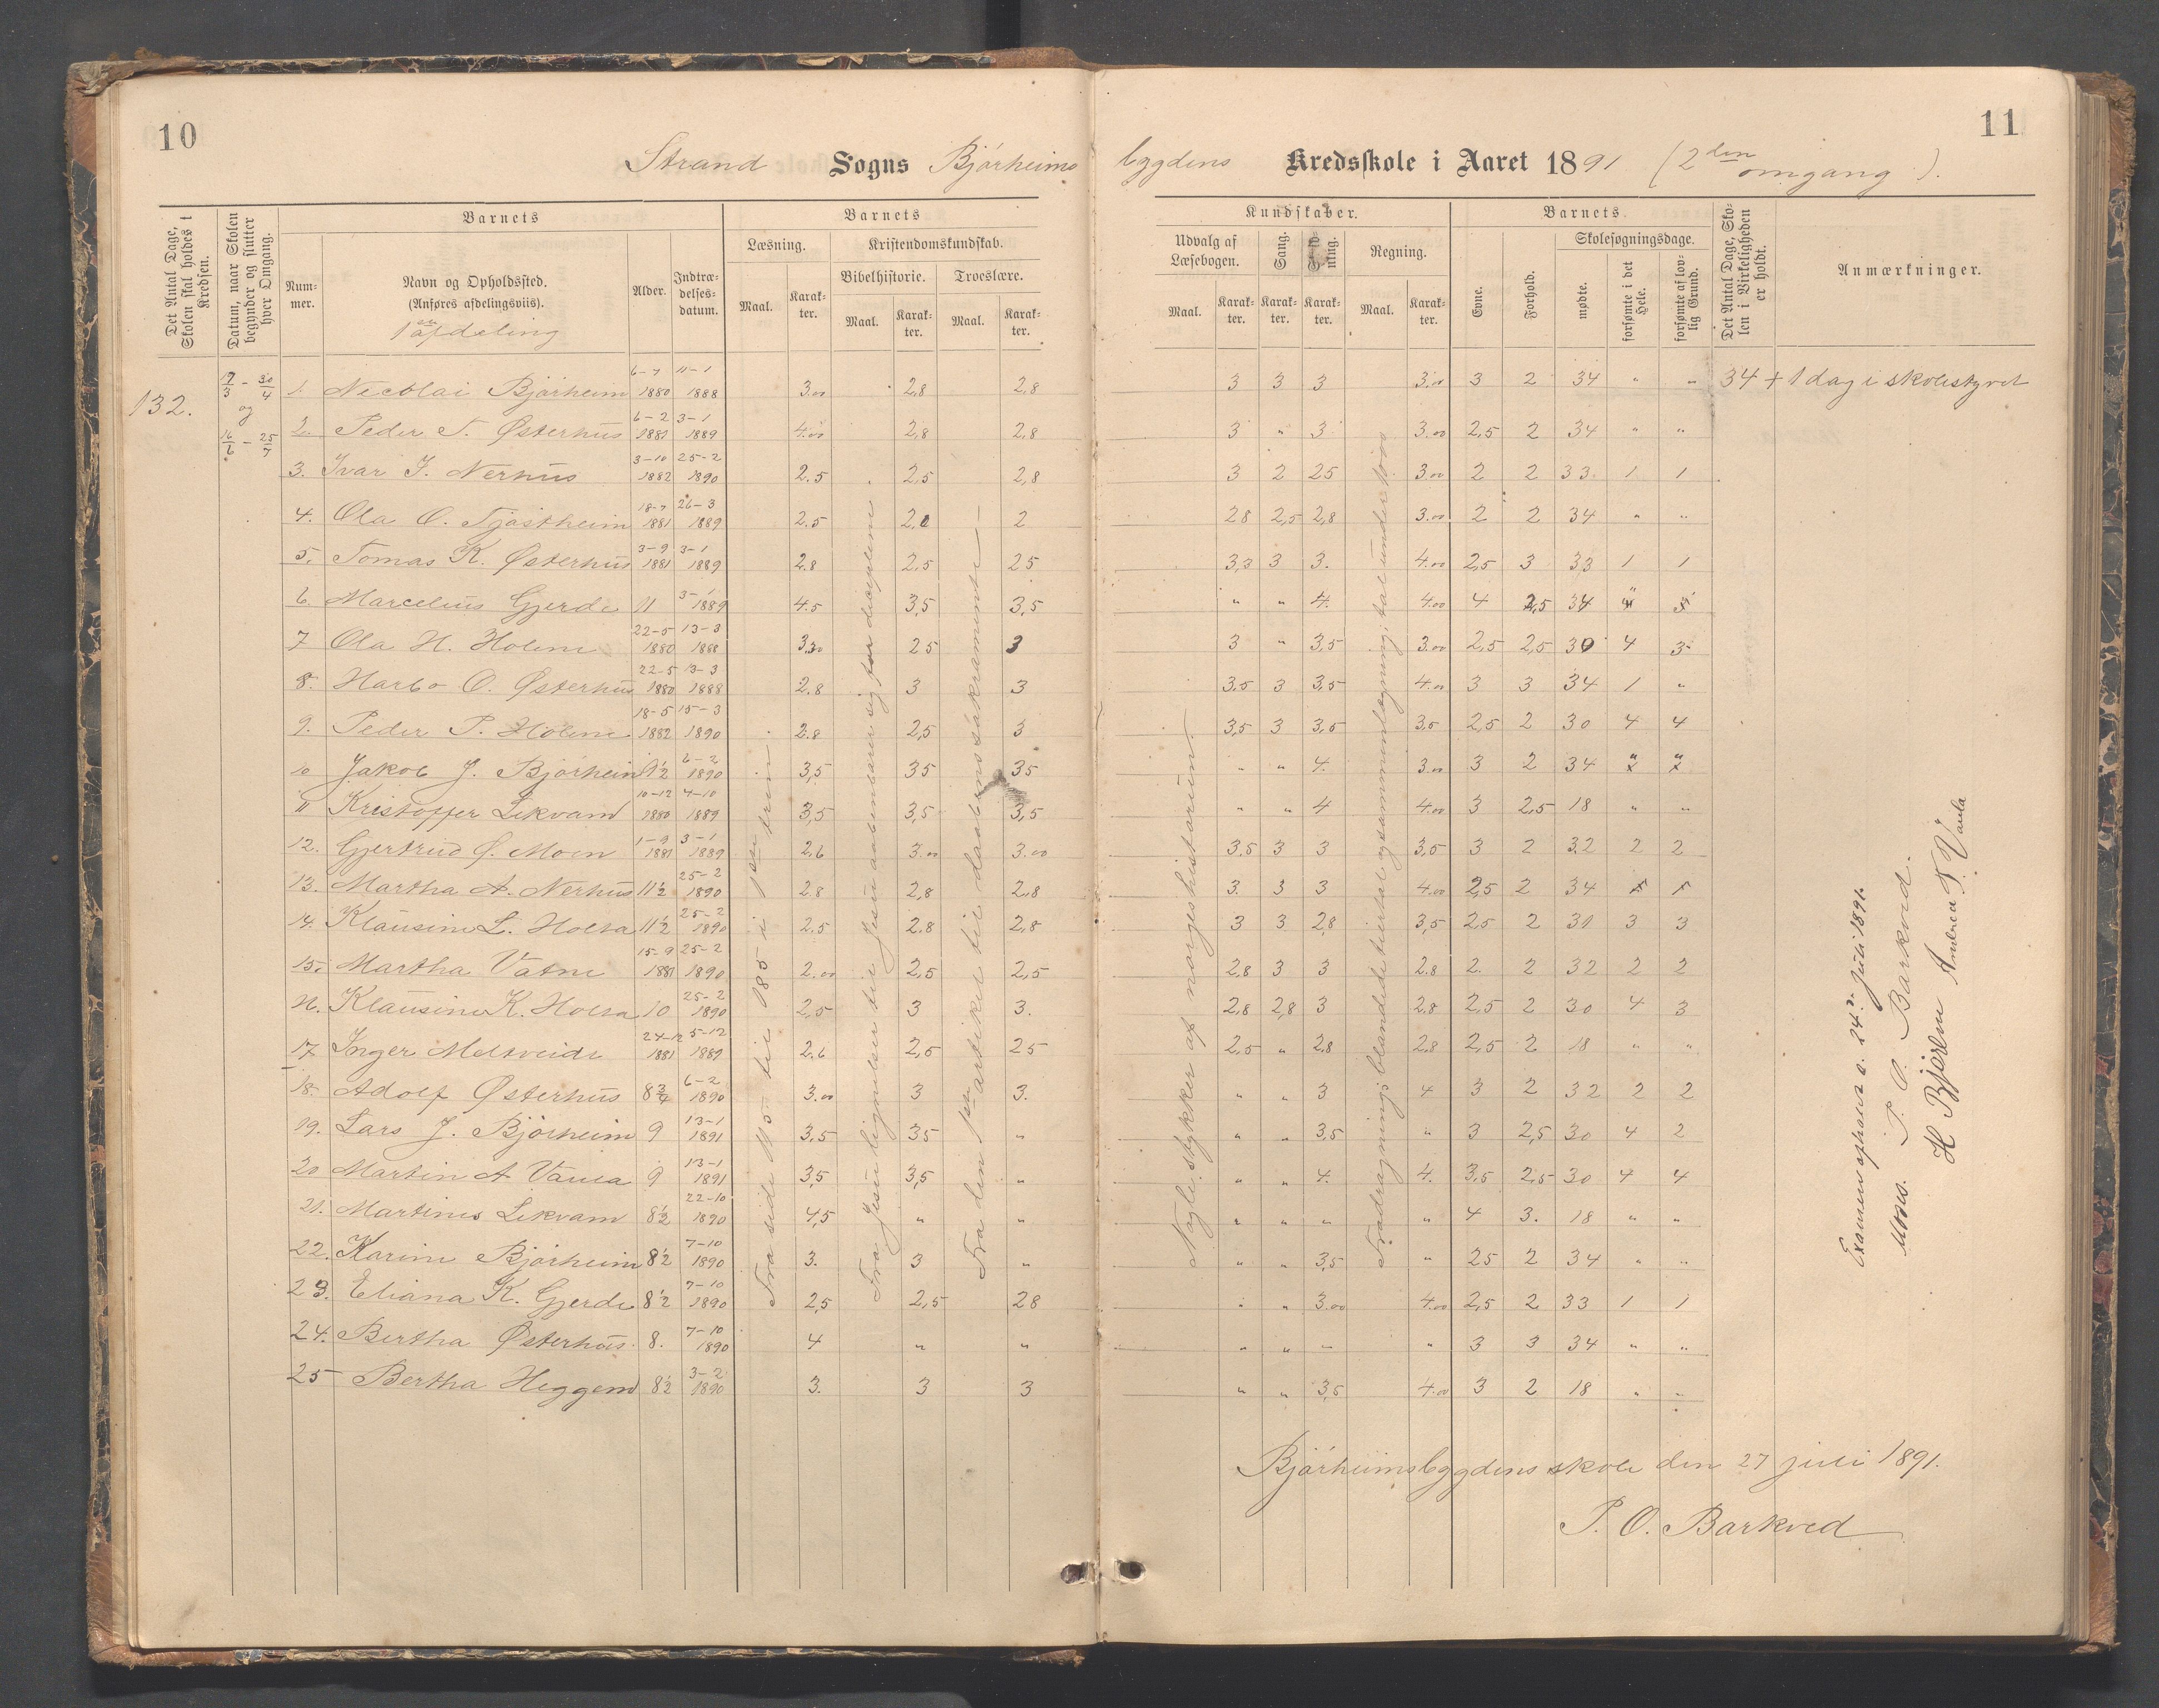 10
Strand Sogns Bjørheims
Det Antal Dage, Skolen skal holdes i Kredsen.
Datum, naar Skolen begynder og slutter hver Omgang.
Barnets
Num-mer.
Navn og Opholdssted.
(Anføres afdelingsviis).
1ste afdeling
Alder.
Indtræ-delses-datum.
Barnets
Læsning.
Kristendomskundskab.
Bibelhistorie.
Troeslære.
Maal. Karak-ter. Maal. Karak-ter. Maal. Karak-ter.
132.
17/3 - 30/4
og
16/6 - 25/7
1. Nicolai Bjørheim 6-7 1880 11-1 1888 3.00 2,8 2,8
2. Peder T. Østerhus 6-2 1881 3-1 1889 4.00 2,8 2.8
3. Ivar J. Nerhus 3-10 1882 25-2 1890 2.5 2,5 2,8
4. Ola O. Tjøstheim 18-7 1881 26-3 1889 2.5 2,0 2
5. Tomas K. Østerhus 3-9 1881 3-1 1889 2.8 2,5 25
6. Marcelius Gjerde 11 3-1 1889 4.5 3,5 3,5
7 Ola H. Holme 22-5 1880 13-3 1888 3.30 25 3
8. Harbo O. Østerhus 22-5 1880 13-3 1888 2.8 3 3
9. Peder P. Holme 18-5 1882 15-3 1890 2.8 2,5 3
10 Jakob J. Bjørheim 9½ 6-2 1890 3,5 35 35
11 Kristoffer Lekvam 10-12 1880 4-10 1889 3,5 3,5 3,5
12. Gjertrud G. Moen 1-9 1881 3-1 1889 2.6 3.00 3.00
13. Martha A. Nerhus 11½ 25-2 1890 2.8 2,8 2,8
14. Klausine L. Holta 11½ 25-2 1890 2.5 2.8 2,8
15. Martha Vatne 15-9 1881 25-2 1890 2.00 2,5 2,5
16. Klausine K. Holta 10 25-2 1890 2,5 3 3.
17 Inger Meltveide 24-12 1881 5-12 1889 2.6 2,5 25
18. Adolf Østerhus 8¾ 6-2 1890 3.00 3 3.
19. Lars J. Bjørheim 9 13-1 1891 3,5 35 "
20 Martin A Vaula 9 13-1 1891 3,5 3,5 "
21. Martines Lekvam 8½ 22-10 1890 4,5 " "
22. Karine Bjørheim 8½ 7-10 1890 3. 3 "
23. Eliana K. Gjerde 8½ 7-10 1890 2,5 2,5 28
24. Bertha Østerhus. 8. 7-10 1890 4 " "
25 Bertha Heggem 8½ 3-2 1890 3. 3 3
Fra side 115 til 185 i 1ste trin
Fra Jesu lignelser til Jesu aabenbarer sig for disciplene
Fra den 1ste artikel til daabens sakramente
11
bygdens Kredsskole i Aaret 1891 (2den omgang).
Kundskaber.
Udvalg af Læsebogen.
Sang.
Regning.
Barnets.
Evne.
Forhold.
Skolesøgningsdage.
mødte.
forsømte i det Hele.
forsømte af lov-lig Grund.
Det Antal Dage, Sko-len i Virkeligheden er holdt.
Anmærkninger.
Maal. Karak-ter. Karak-ter. Karak-ter. Maal. Karak-ter.
3 3 3 3.00 3 2 34 " " 34 + 1 dag i skolestyret
3 " 3 3.00 2,5 2 34 " "
3 2 25 3.00 2 2 33 1 1
28 2,5 2,8 3.00 2 2 34 " "
3,3 3 3. 4.00 2,5 3 33 1 1
" " 4. 4.00 4 2,5 34 "
3 " 3,5 3.00 2,5 2,5 30 4 3
3,5 3 3,5 4.00 3 3 34 1 "
3,5 3 3,5 3,5 2,5 2 30 4 4
" " 4. 3.00 3 2 34 " "
" " 4 4.00 3 2,5 18 " "
3,5 3 3 3,5 3 2 32 2 2
3. 3 3 4.00 2,5 2 34
3 3 2,8 3,5 25 2 31 3 3
2,8 3 3 2.8 2. 2 32 2 2
2,8 2,8 3 2.8 2,5 2 30 4 3
2,5 " 2.8 2.8 2,5 2 18 " "
" " 3 4 3 2 32 2 2
" " 3,5 " 3 2,5 30 4 2
" " 4. 4. 3,5 2,5 30 4 4
" " " " 4 3. 18 " "
" " 3,5 " 25 2 34 " "
" " 3.00 4.00 2,5 2 33 1 1
" " " " 3 3 34 " "
" " 3,5 4.00 3 2 18 " "
Nogle stykker af norgeshistorien.
Fradragning; blandede tiertal og sammenlægning; tal under 100
Examen afholdes d. 24de Juli 1891.
Moses. P. O. Barkved.
H Bjerlem Andreas T. Vaula
Bjørheimsbygdens skole den 27 juli 1891.
P. O. Barkved